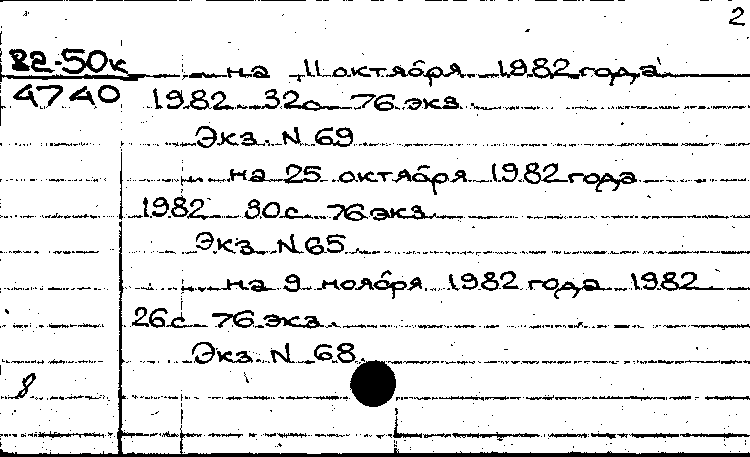 2
82-50к
... на 11 октября 1982 года
4740 1982 32с 76 экз.
Экз. N 69
... на 25 октября 1982 года
1982 30с 76 экз.
Экз. N 65
... на 9 ноября 1982 года 1982
26с 76 экз.
Экз. N 68.
8